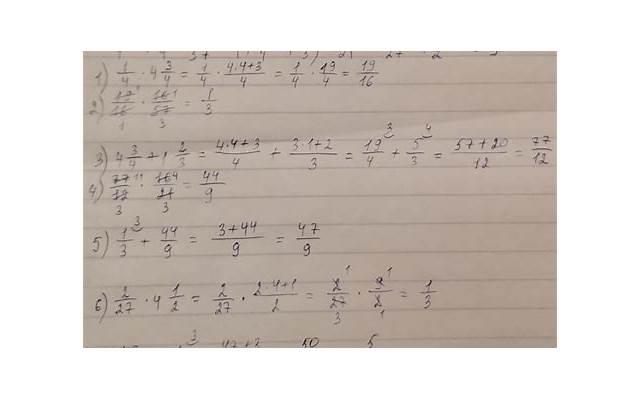 1) 1/4 · 4 3/4 = 1/4 · (4·4+3)/4 = 1/4 · 19/4 = 19/16
2) 19/16 · 16/57 = 1/3
3) 4 3/4 + 1 2/3 = (4·4+3)/4 + (3·1+2)/3 = 19/4 + 5/3 = (57+20)/12 = 77/12
4) 77/12 · 16/21 = 44/9
5) 1/3 + 44/9 = (3+44)/9 = 47/9
6) 2/27 · 4 1/2 = 2/27 · (2·4+1)/2 = 2/27 · 9/2 = 1/3